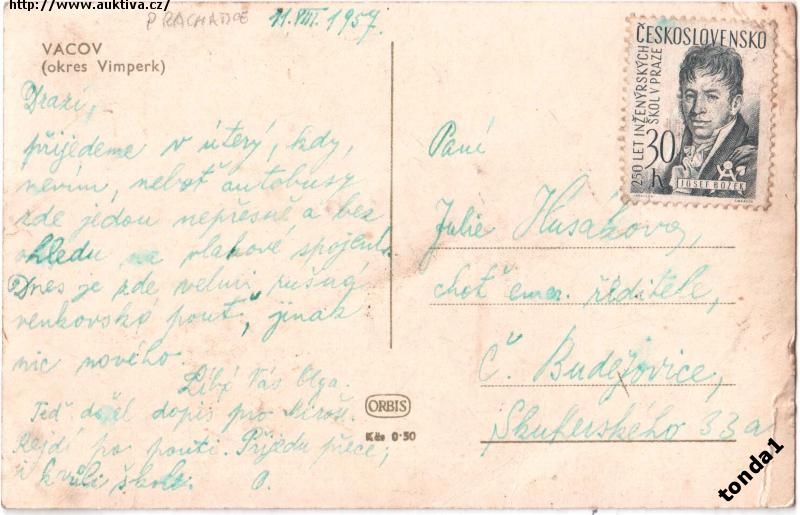 http://www.auktiva.cz/
PRACHATICE
11.VIII.1957.
VACOV
(okres Vimperk)
Drazí,
přijedeme v úterý, kdy,
nevím, neboť autobusy
zde jedou nepřesně a bez
ohledu na vlakové spojení.
Dnes je zde velmi rušná
venkovská pouť, jinak
nic nového.
Líbá Vás Olga.
Teď došel dopis pro
po pouti. Přijedu přece,
i kvůli škole. O.
ORBIS
Kčs 0·50
ČESKOSLOVENSKO
250 LET INŽENÝRSKÝCH
ŠKOL V PRAZE
30
h
JOSEF BOŽEK
Paní
Julie Husákova,
choť emer. ředitele,
Č. Budějovice,
Skuherského 33a
tonda1